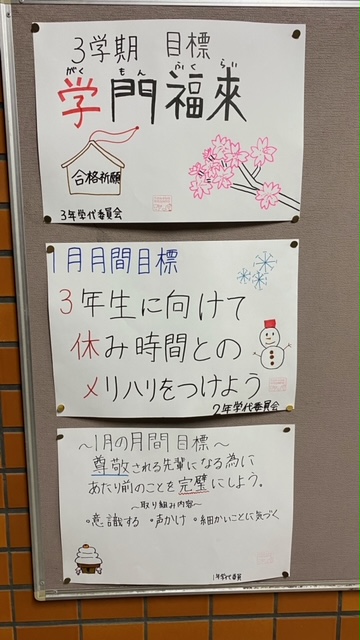 3学期 目標
がく もん ふく らい
学門福来
合格祈願
3年学代委員会
1月月間目標
3年生に向けて
休み時間との
メリハリをつけよう
2年学代委員会
～1月の月間目標～
尊敬される先輩になる為に
あたり前のことを完璧にしよう.
～取り組み内容～
・意識する ・声かけ ・細かいことに気づく
1年学代委員